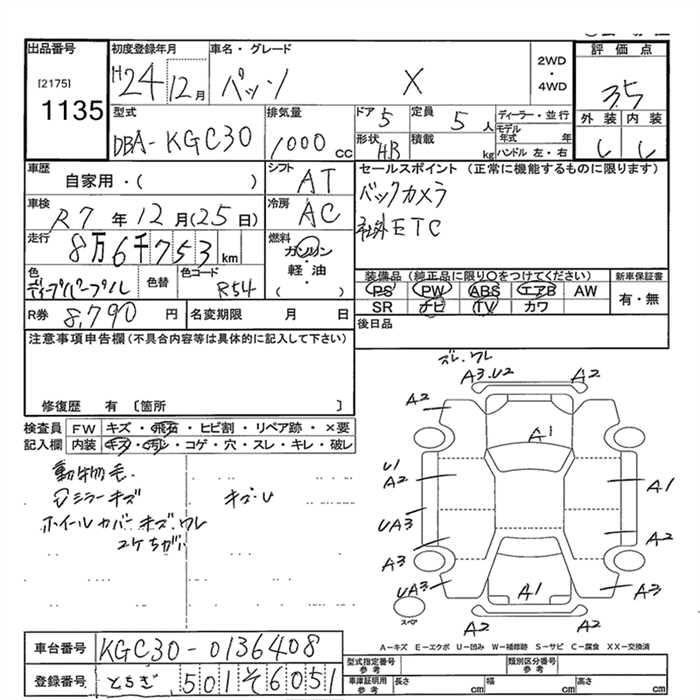 出品番号
[2175]
1135
初度登録年月
H24 12月
車名・グレード
パッソ X
2WD
・
4WD
評価点
3.5
外装 内装
型式
DBA-KGC30
排気量
1000 cc
ドア 5
定員 5人
ディーラー・並行
モデル年式 年
形状 HB
積載 kg
ハンドル 左・右
車歴
自家用・( )
シフト AT
セールスポイント (正常に機能するものに限ります)
バックカメラ
社外ETC
車検
R7年12月(25日)
冷房 AC
走行
8万6千753km
燃料
ガソリン
・
軽油
( )
色
ディープパープル
色替
色コード R54
装備品 (純正品に限り○をつけてください)
PS PW ABS エアB AW
SR ナビ TV カワ
新車保証書
有・無
R券 8,790円
名変期限 月 日
後日品
注意事項申告欄(不具合内容等は具体的に記入して下さい)
修復歴 有 〔箇所 〕
検査員記入欄
FW キズ・飛石・ヒビ割・リペア跡・×要
内装 キズ・汚れ・コゲ・穴・スレ・キレ・破レ
動物毛
ミラーキズ
キズ・U
ホイールカバーキズ・ワレ
コケちがい
ズレ・ワレ
A3・U2 A2
A2 A2
A1
U1
A2
A1
UA3
A2
A3
UA3
A1
A3
スペア
A2 A2
A-キズ E-エクボ U-凹み W-補修跡 S-サビ C-腐食 XX-交換済
車台番号 KGC30-0136408
登録番号 とちぎ 501 そ 6051
型式指定番号 参考
類別区分番号 参考
車庫証明用 参考
長さ cm
幅 cm
高さ cm